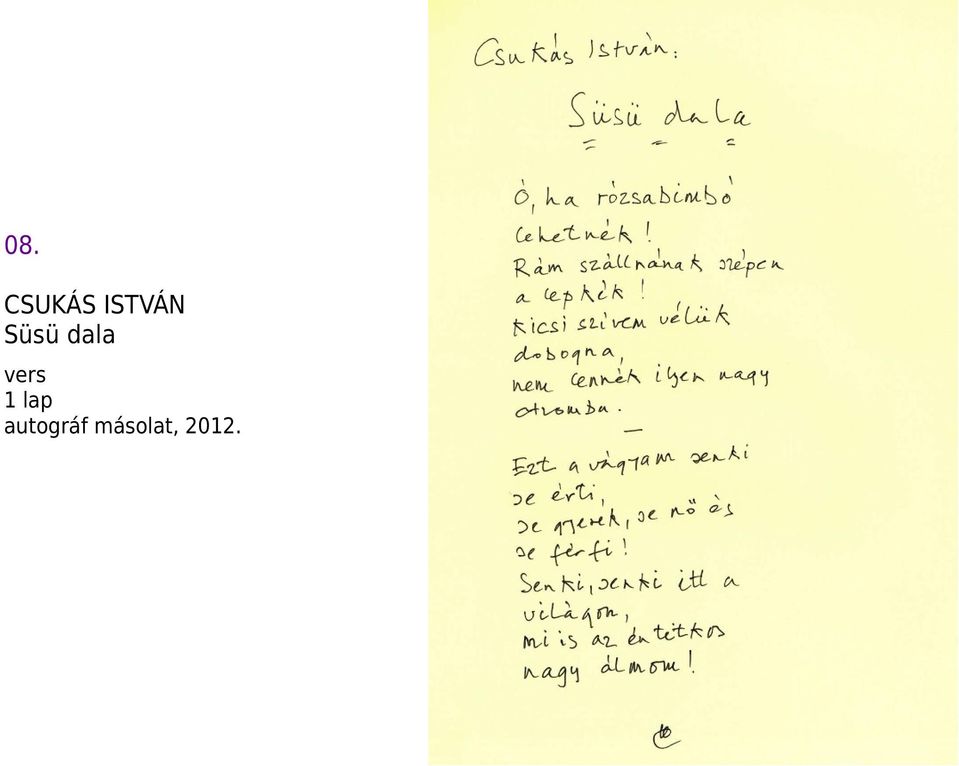 08.
CSUKÁS ISTVÁN
Süsü dala
vers
1 lap
autográf másolat, 2012.
Csukás István:
Süsü dala
Ó, ha rózsabimbó
lehetnék!
Rám szállnának szépen
a lepkék!
Kicsi szívem vélük
dobogna,
nem lennék ilyen nagy
otromba.
—
Ezt a vágyam senki
se érti,
se gyerek, se nő és
se férfi!
Senki, senki itt a
világon,
mi is az én titkos
nagy álmom!